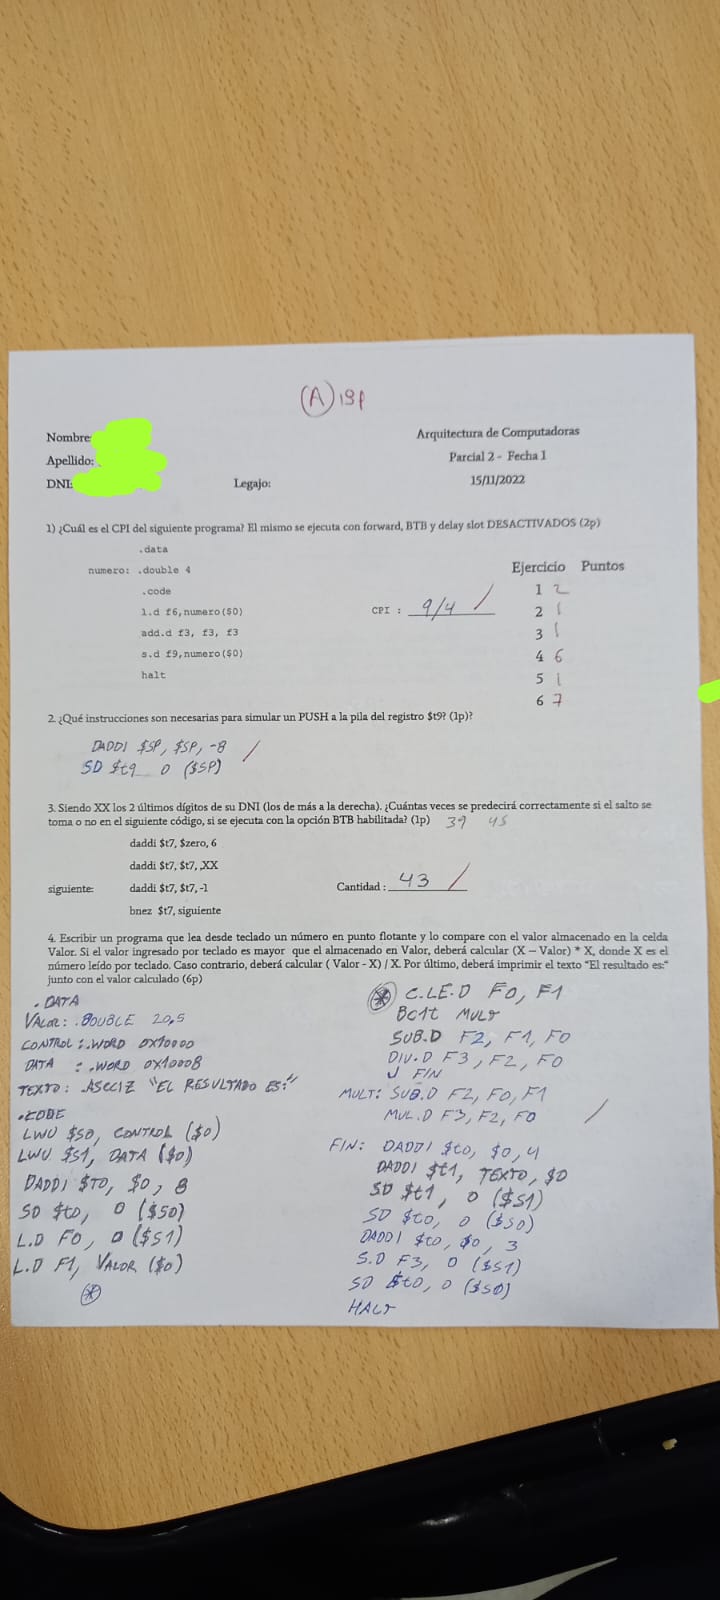 (A) 18p
Nombre:
Apellido:
DNI: Legajo:
Arquitectura de Computadoras
Parcial 2 - Fecha 1
15/11/2022
1) ¿Cuál es el CPI del siguiente programa? El mismo se ejecuta con forward, BTB y delay slot DESACTIVADOS (2p)
.data
numero: .double 4
.code
l.d f6,numero($0)
add.d f3, f3, f3
s.d f9,numero($0)
halt
CPI : 9/4
Ejercicio Puntos
1 2
2 1
3 1
4 6
5 1
6 7
2. ¿Qué instrucciones son necesarias para simular un PUSH a la pila del registro $t9? (1p)?
DADDI $SP, $SP, -8
SD $t9 0 ($SP)
3. Siendo XX los 2 últimos dígitos de su DNI (los de más a la derecha). ¿Cuántas veces se predecirá correctamente si el salto se
toma o no en el siguiente código, si se ejecuta con la opción BTB habilitada? (1p) 39 45
daddi $t7, $zero, 6
daddi $t7, $t7, ,XX
siguiente: daddi $t7, $t7, -1
bnez $t7, siguiente
Cantidad : 43
4. Escribir un programa que lea desde teclado un número en punto flotante y lo compare con el valor almacenado en la celda
Valor. Si el valor ingresado por teclado es mayor que el almacenado en Valor, deberá calcular (X – Valor) * X, donde X es el
número leído por teclado. Caso contrario, deberá calcular ( Valor - X) / X. Por último, deberá imprimir el texto "El resultado es:"
junto con el valor calculado (6p)
.DATA
VALOR: .DOUBLE 20,5
CONTROL: .WORD 0X10000
DATA : .WORD 0X10008
TEXTO: .ASCCIZ "EL RESULTADO ES:"
.CODE
LWU $S0, CONTROL ($0)
LWU $S1, DATA ($0)
DADDI $T0, $0, 8
SD $t0, 0 ($S0)
L.D F0, 0 ($S1)
L.D F1, VALOR ($0)
*
* C.LE.D F0, F1
BC1T MULT
SUB.D F2, F1, F0
DIV.D F3, F2, F0
J FIN
MULT: SUB.D F2, F0, F1
MUL.D F3, F2, F0
FIN: DADDI $t0, $0, 4
DADDI $t1, TEXTO, $0
SD $t1, 0 ($S1)
SD $t0, 0 ($S0)
DADDI $t0, $0, 3
S.D F3, 0 ($S1)
SD $t0, 0 ($S0)
HALT